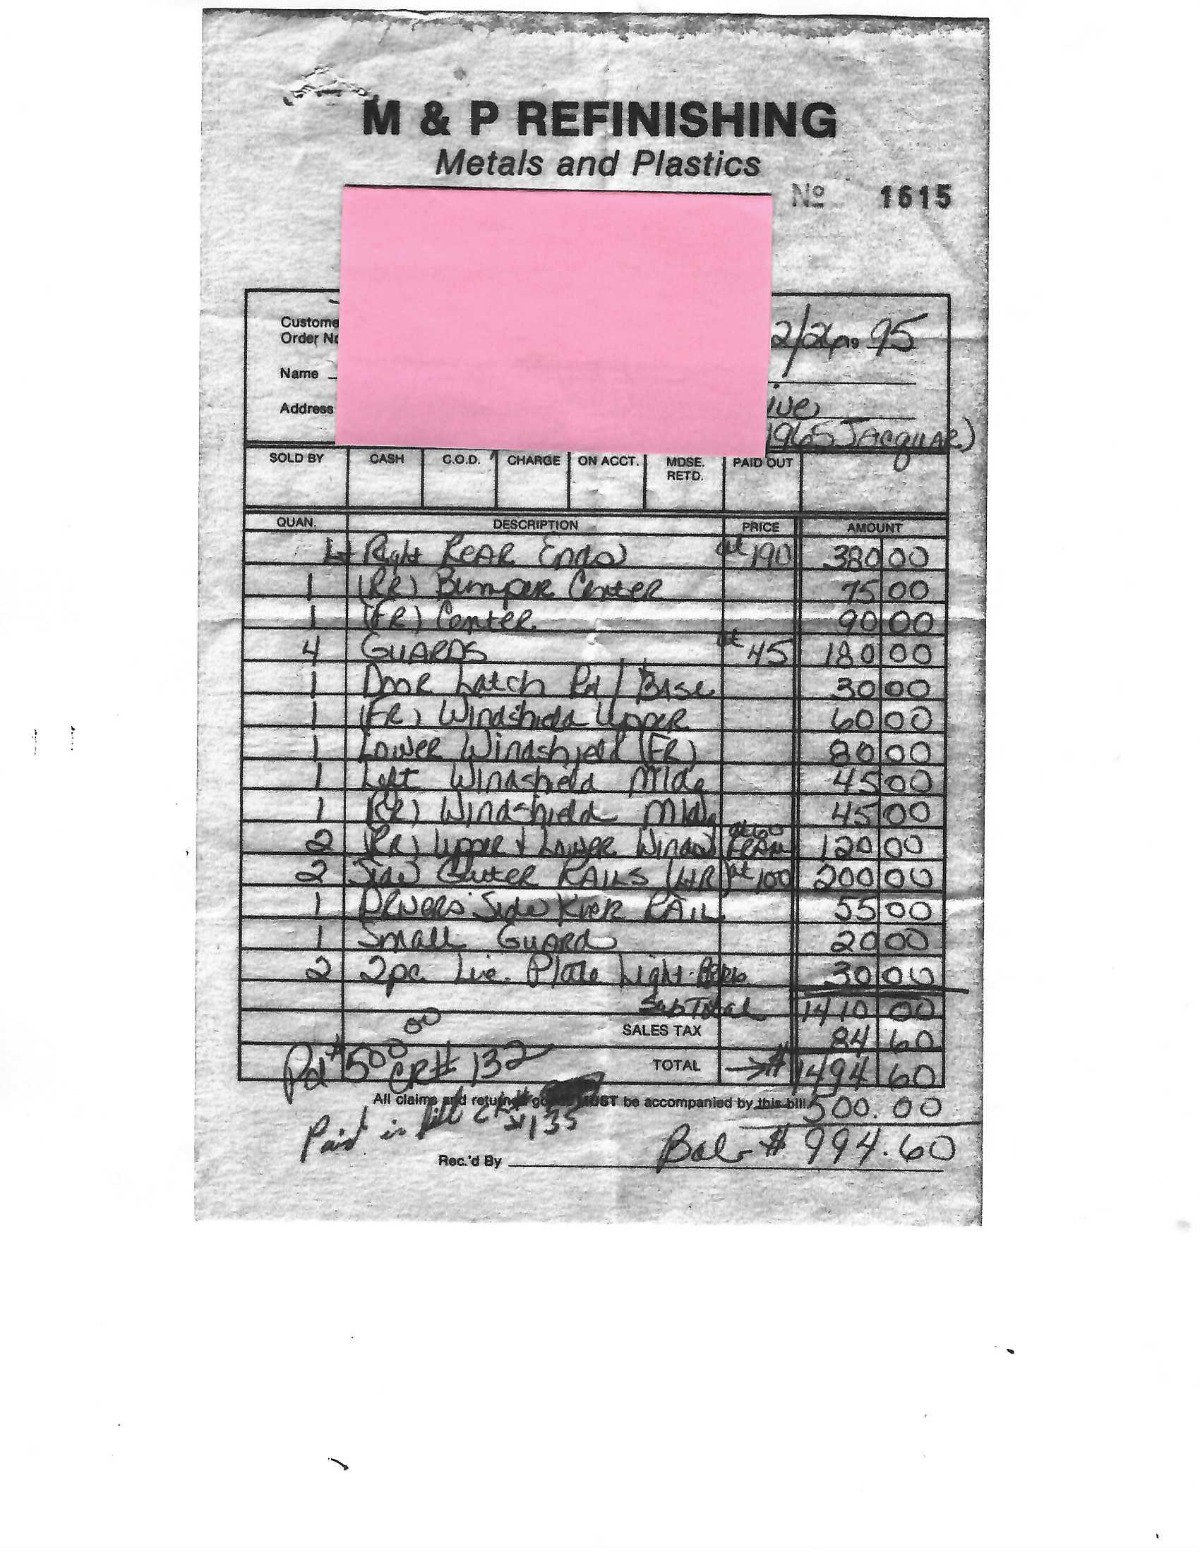 M & P REFINISHING
Metals and Plastics
No 1615
Custome
Order No 2/2 95
Name
Address ive
(1965 Jacquar)
SOLD BY CASH C.O.D. CHARGE ON ACCT. MDSE. RETD. PAID OUT
QUAN. DESCRIPTION PRICE AMOUNT
Right Rear Ends at 190 380 00
1 (RR) Bumper Center 75 00
1 (FR) Center 90 00
4 Guards at 45 180 00
1 Door Latch / Base 30 00
1 (FR) Windshield Upper 60 00
1 Lower Windshield (FR) 80 00
1 Left Windshield Mldg 45 00
1 Windshield Mldg 45 00
2 (RR) Upper + Lower Window at 60 120 00
2 Side Gutter Rails at 100 200 00
1 Drivers Side Rail 55 00
1 Small Guard 20 00
2 2pc Lic. Plate Light 30 00
Sub Total 1410 00
SALES TAX 84 60
Pd $500 00 CR# 132 TOTAL → $ 1494 60
All claims and returned goods MUST be accompanied by this bill. 500.00
Paid in full 1135
Rec.'d By Bal- $ 994.60